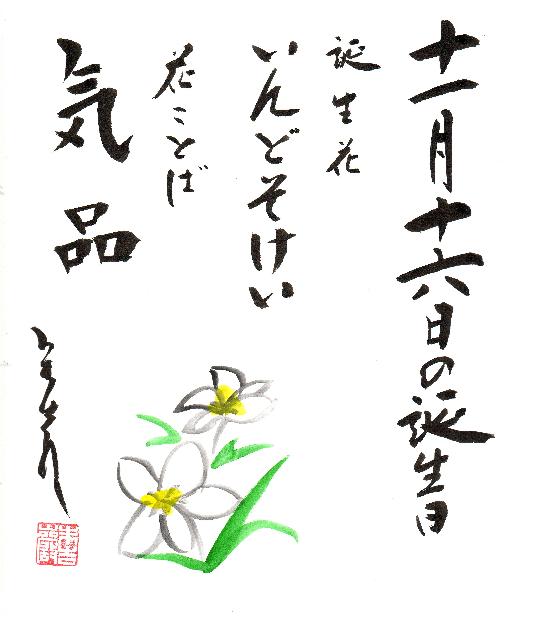 十一月十六日の誕生日
誕生花
いんどそけい
花ことば
気品